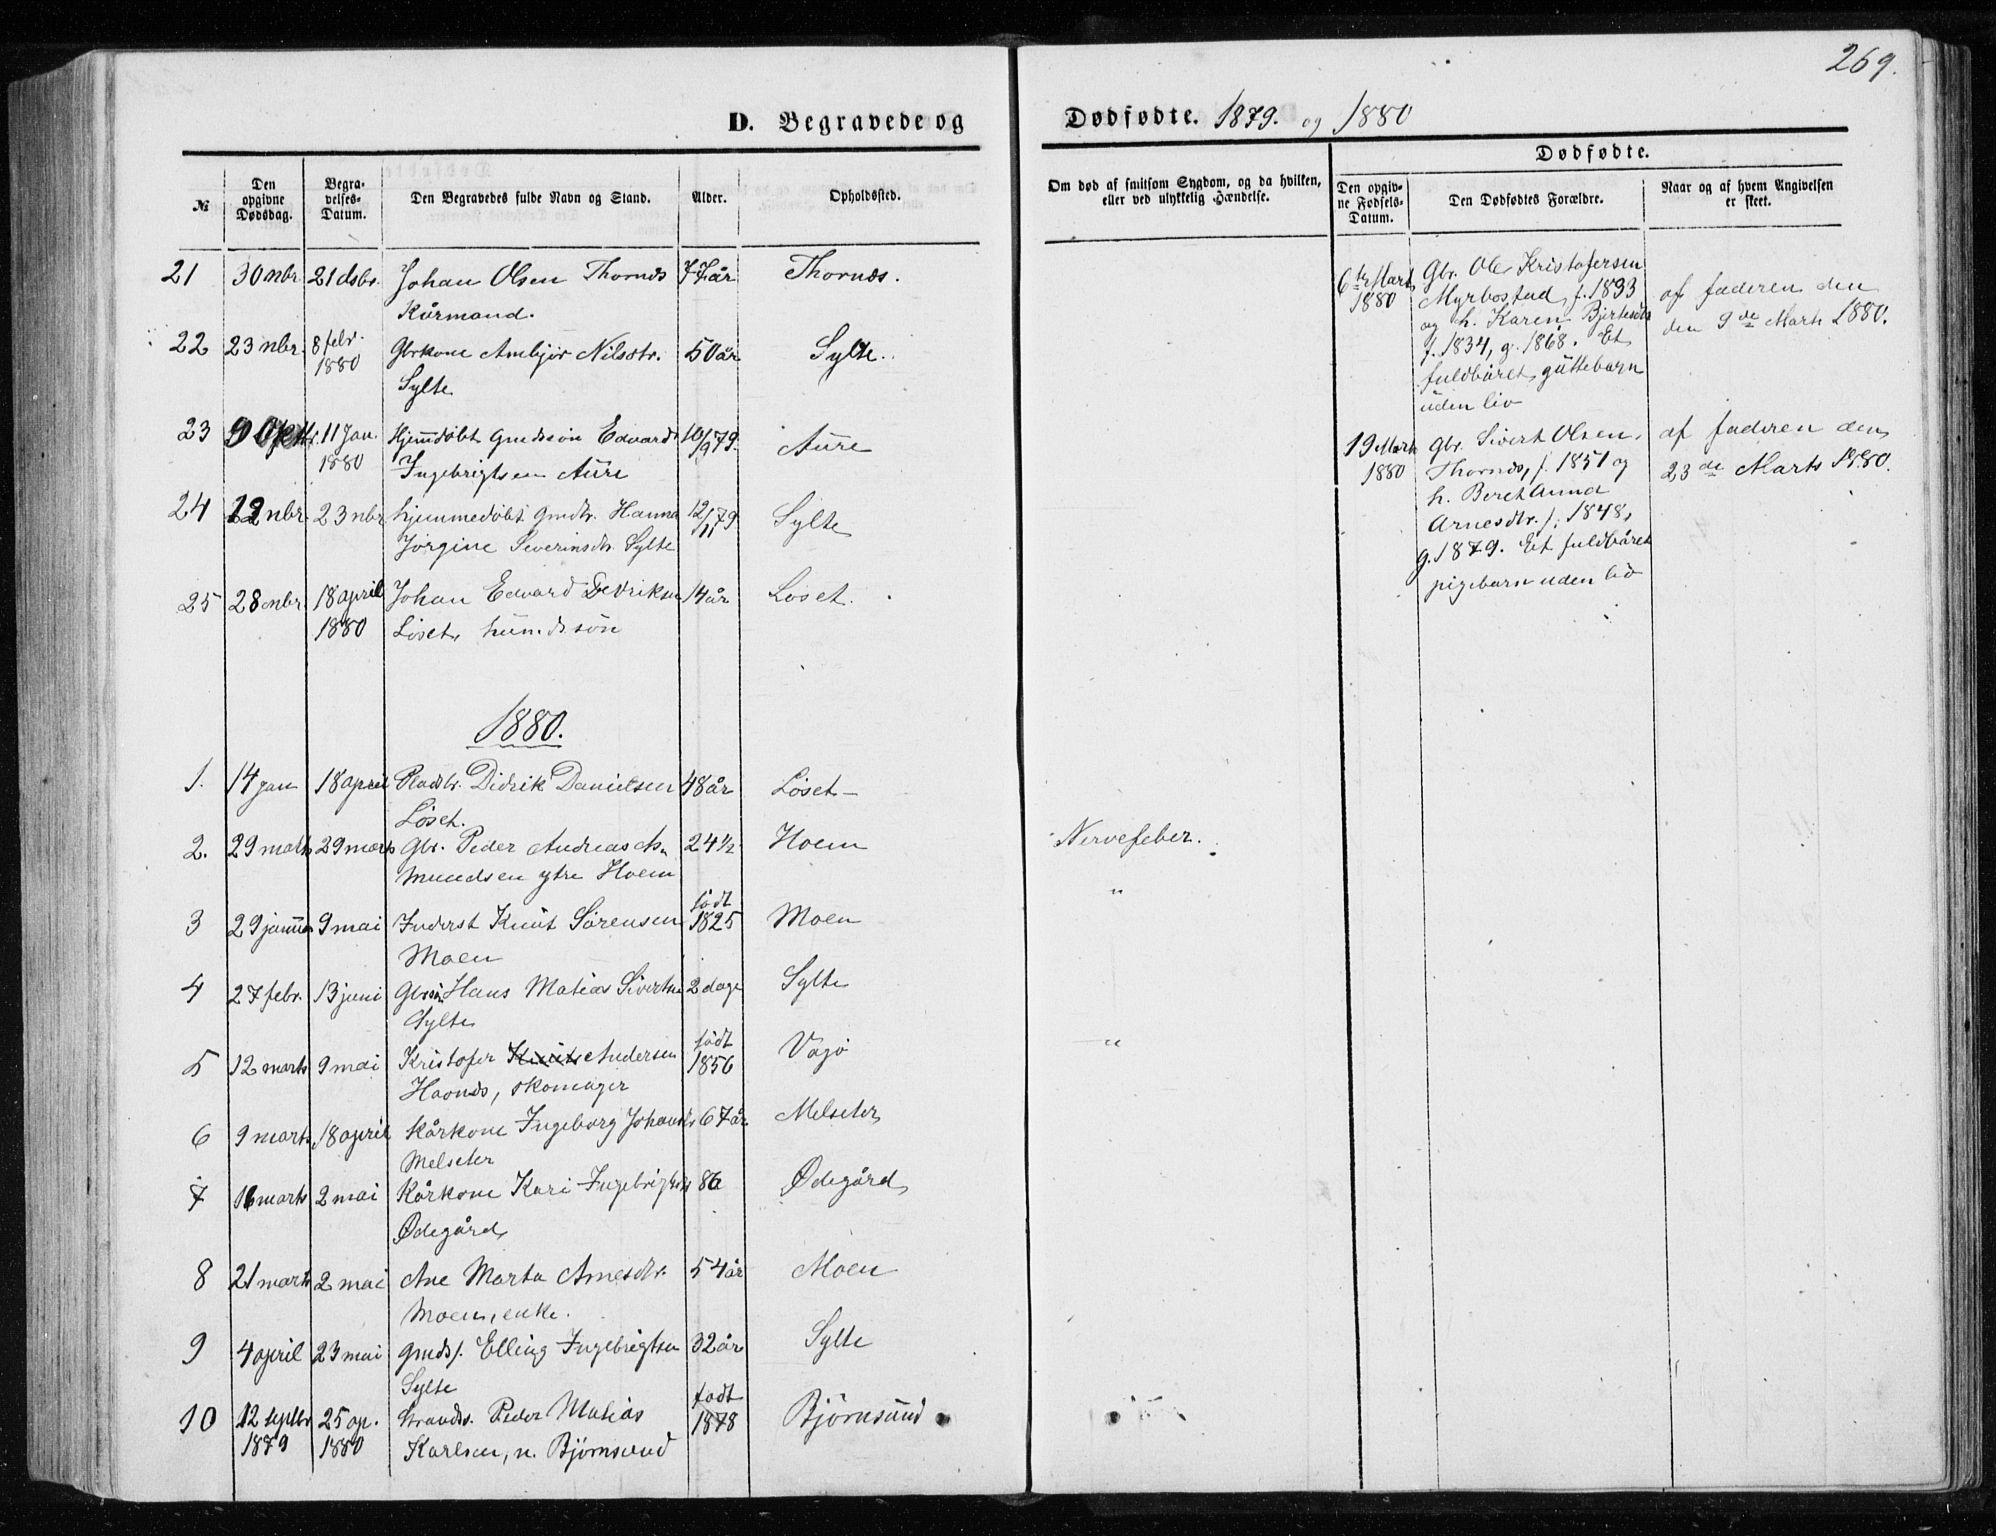 269.
D. Begravede og Dødfødte. 1879. og 1880
Dødfødte.
№
Den opgivne Dødsdag.
Begravelses-Datum.
Den Begravedes fulde Navn og Stand.
Alder.
Opholdssted.
Om død af smitsom Sygdom, og da hvilken, eller ved ulykkelig Hændelse.
Den opgivne Fødsels-Datum.
Den Dødfødtes Forældre.
Naar og af hvem Angivelsen er skeet.
21 30 nbr. 21 dsbr. Johan Olsen Thornæs 77 år Thornæs.
Kårmand.
22 23 nbr. 8 febr. Gbrkone Ambjør Nilsdtr. 50 år Sylte.
1880 Sylte
23 9 Oktb. 11 Jan. Hjemdøbt gmdssøn Edvard 10/9 79. Aure
1880 Ingebrigtsen Aure
24 12 nbr. 23 nbr. hjemmedøbt gmdtr. Hanna 12/11 79 Sylte
Jorgine Severinsdtr. Sylte
25 28 nbr. 18 april Johan Edvard Didriksen 14 år Løset.
1880 Løset, husmdssøn
6te Marts
1880
Gbr. Ole Kristofersen
Myrbostad, f. 1833
og h. Karen
f. 1834, g. 1868. Et
fuldbåret guttebarn
uden liv
af faderen den
den 9de Marts 1880.
19 Marts
1880
gbr. Sivert Olsen
Thornæs, f. 1851 og
h. Beret Anna
Arnesdtr. f. 1848,
g. 1879. Et fuldbåret
pigebarn uden liv
af faderen den
23de Marts 1880.
1880.
1. 14 jan 18 april Pladsbr. Didrik Danielsen 48 år Løset –
Løset.
2. 29 marts 29 marts Gbr. Peder Andreas As- 24½ Hoem Nervefeber.
mundsen ytre Hoem "
født
3 29 januar 9 mai Inderst Knut Sørensen 1825 Moen
Moen
4 27 febr. 13 juni Gbrsøn Hans Matias Sivertsen 2 dage Sylte
Sylte
født
5 12 marts 9 mai Kristofer Knuts Andersen 1856 Vågø "
Havnæs, skomager
6 9 marts 18 april Kårkone Ingeborg Johansdtr 67 år Melseter
Melseter
7 16 marts 2 mai Kårkone Kari Ingebrigtsdtr 86 Ødegård
Ødegård
8 21 marts 2 mai Ane Marta Arnesdtr. 54 år Moen
Moen, enke.
9 4 april 23 mai gmds. Elling Ingebrigtsen 32 år Sylte
Sylte
født
10 12 septbr 25 ap. Strands. Peder Matias 1878 Bjørnsund
1879 1880 Karlsen, n. Bjørnsund